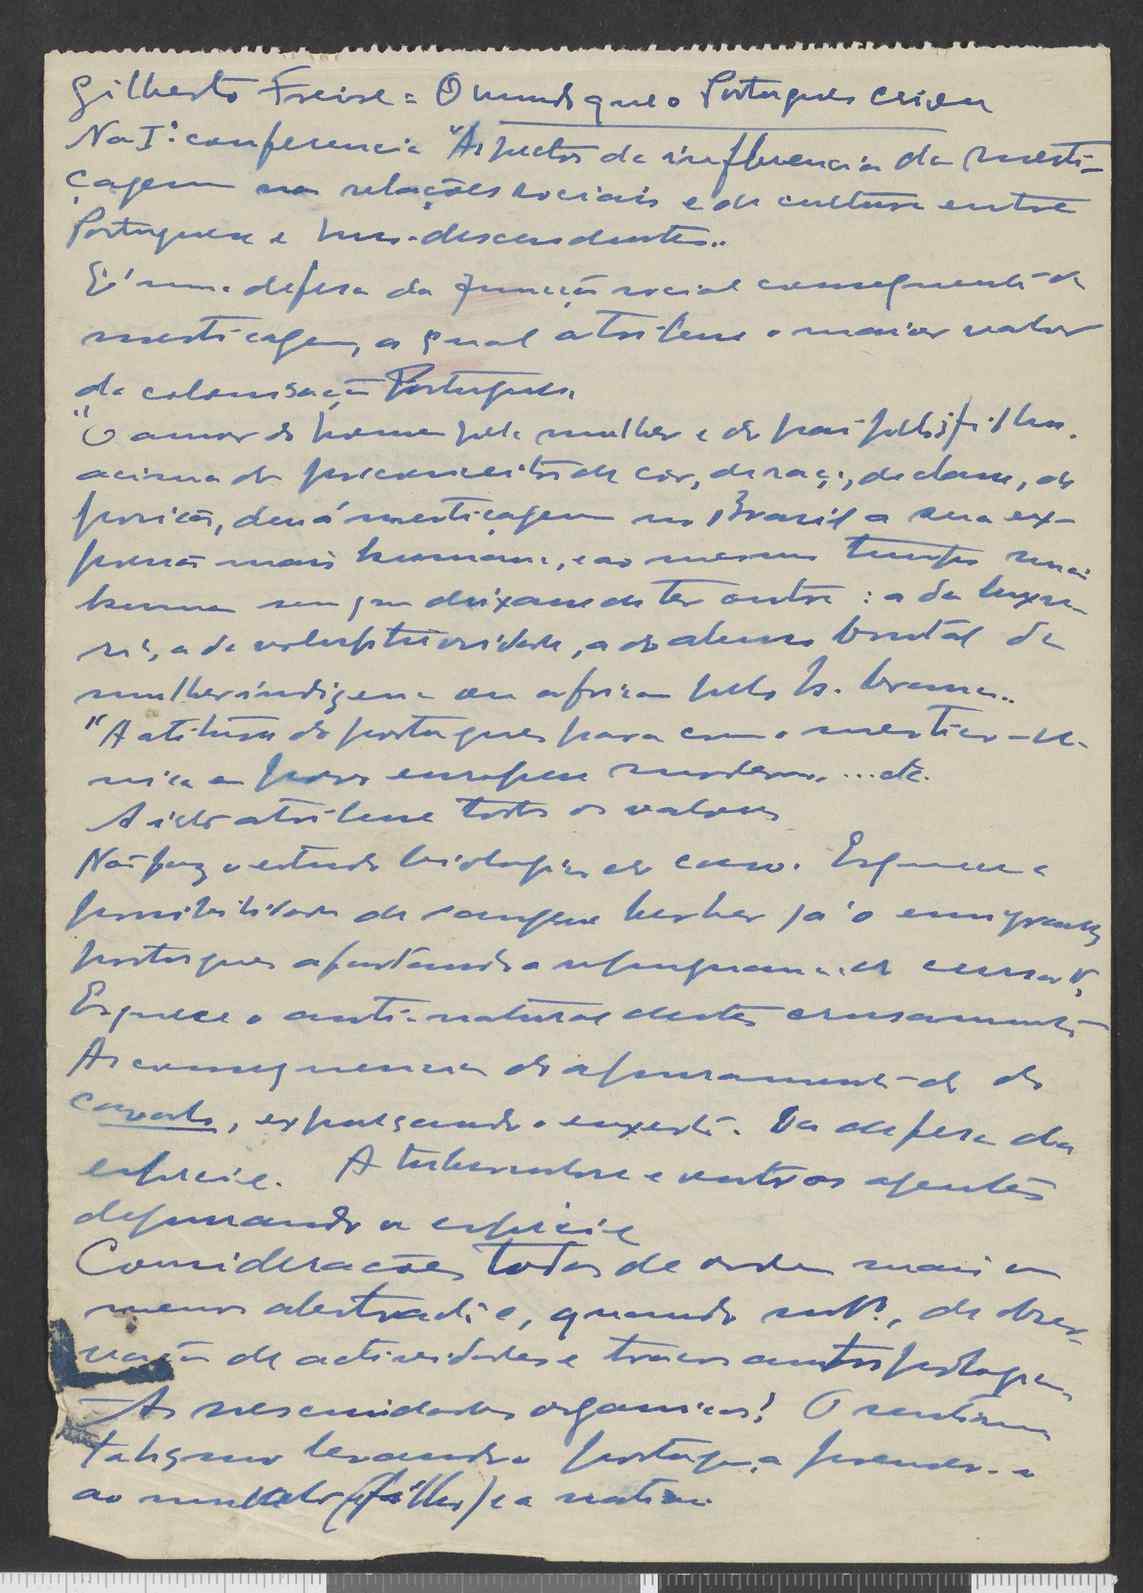 Gilberto Freire = O mundo que o Portugues criou
Na Iª conferencia "Aspectos da influencia da mesti-
çagem nas relações sociais e de cultura entre
Portugueses e luso-descendentes..
É uma defesa da função social consequente da
mestiçagem, a qual atribue o maior valor
da colonisação Portuguesa.
"O amor do homem pela mulher e do pai pelos filhos.
acima de preconceitos de côr, de raça, de classe, de
posição, deu á mestiçagem no Brasil a sua ex-
pressão mais humana, e ao mesmo tempo mais
humana sem que deixasse de ter outra : a da luxu-
ria, a da voluptuosidade, a do abuso brutal da
mulher indigena ou africana pelo h. branco..
"A atitude do portugues para com o mestiço - u-
nica em povos europeus modernos, ... etc.
A isto atribue todos os valores
Não faz o estudo biologico do caso. Esquece a
possibilidade de sangue berber já o emigrante
portugues afastando a repugnancia
Esquece o anti-natural destes crusamentos
As consequencias do apuramento do
, expulsando o enxerto. Da defesa da
especie. A tuberculose e outros agentes
depurando a especie
Considerações todas de ordem mais ou
menos abstracta e, quando mtº., de obser-
vação de actividades e traços antropologicos
As necessidades organicas! O sentimen
talismo levando o portugues a prender-se
ao mulato (filho) e a nativa.